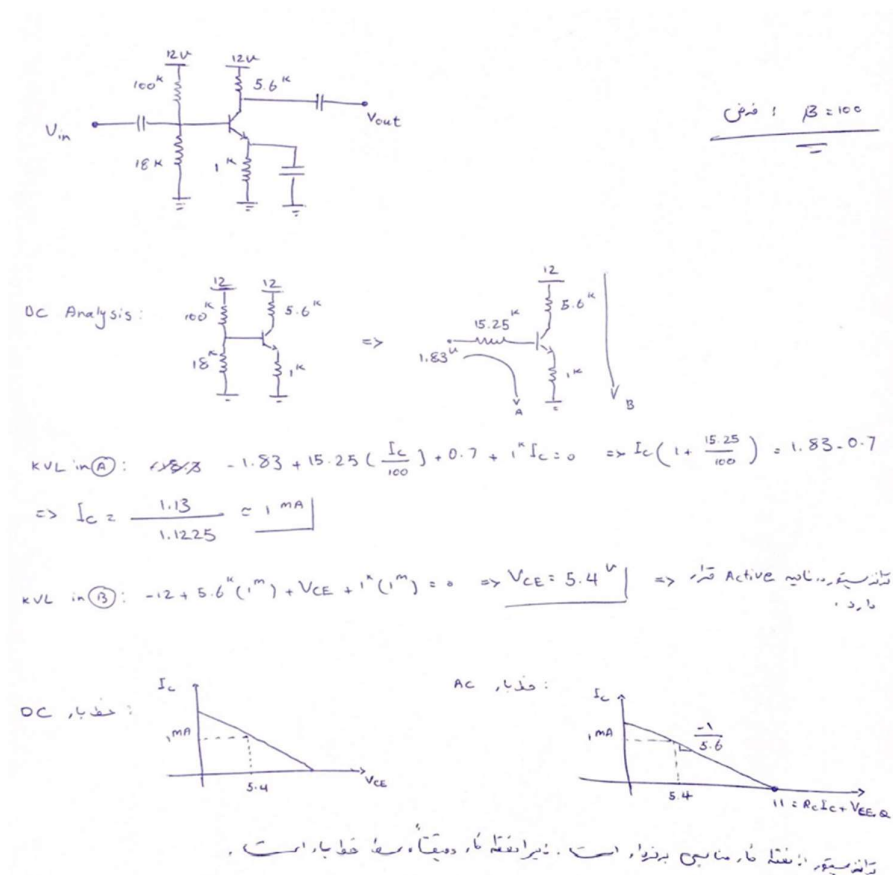 12V 12V
100K 5.6K
Vin Vout
18K 1K
فرض : β = 100
DC Analysis: 12 12 12
100K 5.6K => 15.25K 5.6K
18K 1K 1.83V 1K
A B
KVL in Ⓐ: -1.83 + 15.25 (Ic/100) + 0.7 + 1K Ic = 0 => Ic (1 + 15.25/100) = 1.83 - 0.7
=> Ic = 1.13/1.1225 ≈ 1 mA
KVL in Ⓑ: -12 + 5.6K (1m) + VCE + 1K (1m) = 0 => VCE = 5.4V => ترانزیستور در ناحیه Active قرار
دارد .
DC خط بار : Ic 1mA 5.4 VCE
AC خط بار : Ic 1mA -1/5.6 5.4 11 = RcIc + VCE,Q
ترانزیستور از نقطه کار مناسبی برخوردار است . زیرا نقطه کار دقیقاً وسط خط بار است .